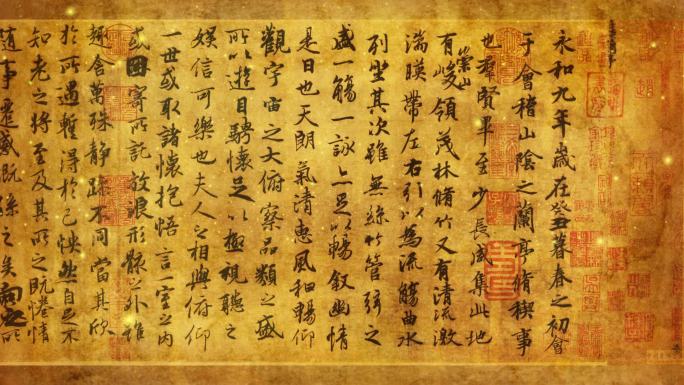 永和九年歲在癸丑暮春之初會
于會稽山陰之蘭亭脩稧事
也群賢畢至少長咸集此地
有崇山峻領茂林脩竹又有清流激
湍暎帶左右引以為流觴曲水
列坐其次雖無絲竹管弦之
盛一觴一詠亦足以暢敘幽情
是日也天朗氣清惠風和暢仰
觀宇宙之大俯察品類之盛
所以遊目騁懷足以極視聽之
娛信可樂也夫人之相與俯仰
一世或取諸懷抱悟言一室之內
或因寄所託放浪形骸之外雖
趣舍萬殊靜躁不同當其欣
於所遇蹔得於己怏然自足不
知老之將至及其所之既惓情
隨事遷感慨係之矣向之所